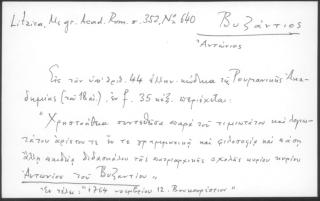 Litzica, Ms gr. Acad. Rom. σ. 352, No 640
Βυζάντιος
Ἀντώνιος
Εἰς τὸν ὑπ' ἀρ. 44 ἑλλην. κώδικα τῆς Ρουμανικῆς Ἀκα-
δημίας (τοῦ ιαι.), ἐν f. 35 κἑξ. περιέχεται:
"Χρηστοήθεια συντεθεῖσα παρὰ τοῦ τιμιωτάτου καὶ λογιω-
τάτου ἀρίστου τε ἐν τε γραμματικῇ καὶ φιλοσοφίᾳ καὶ πάσῃ
ἄλλῃ παιδείᾳ διδασκάλου τῆς πατριαρχικῆς σχολῆς κυρίου κυρίου
Ἀντωνίου τοῦ Βυζαντίου"
"Ἐν τέλει: "1764 νοεμβρίου 12. Βουκουρέστιον"